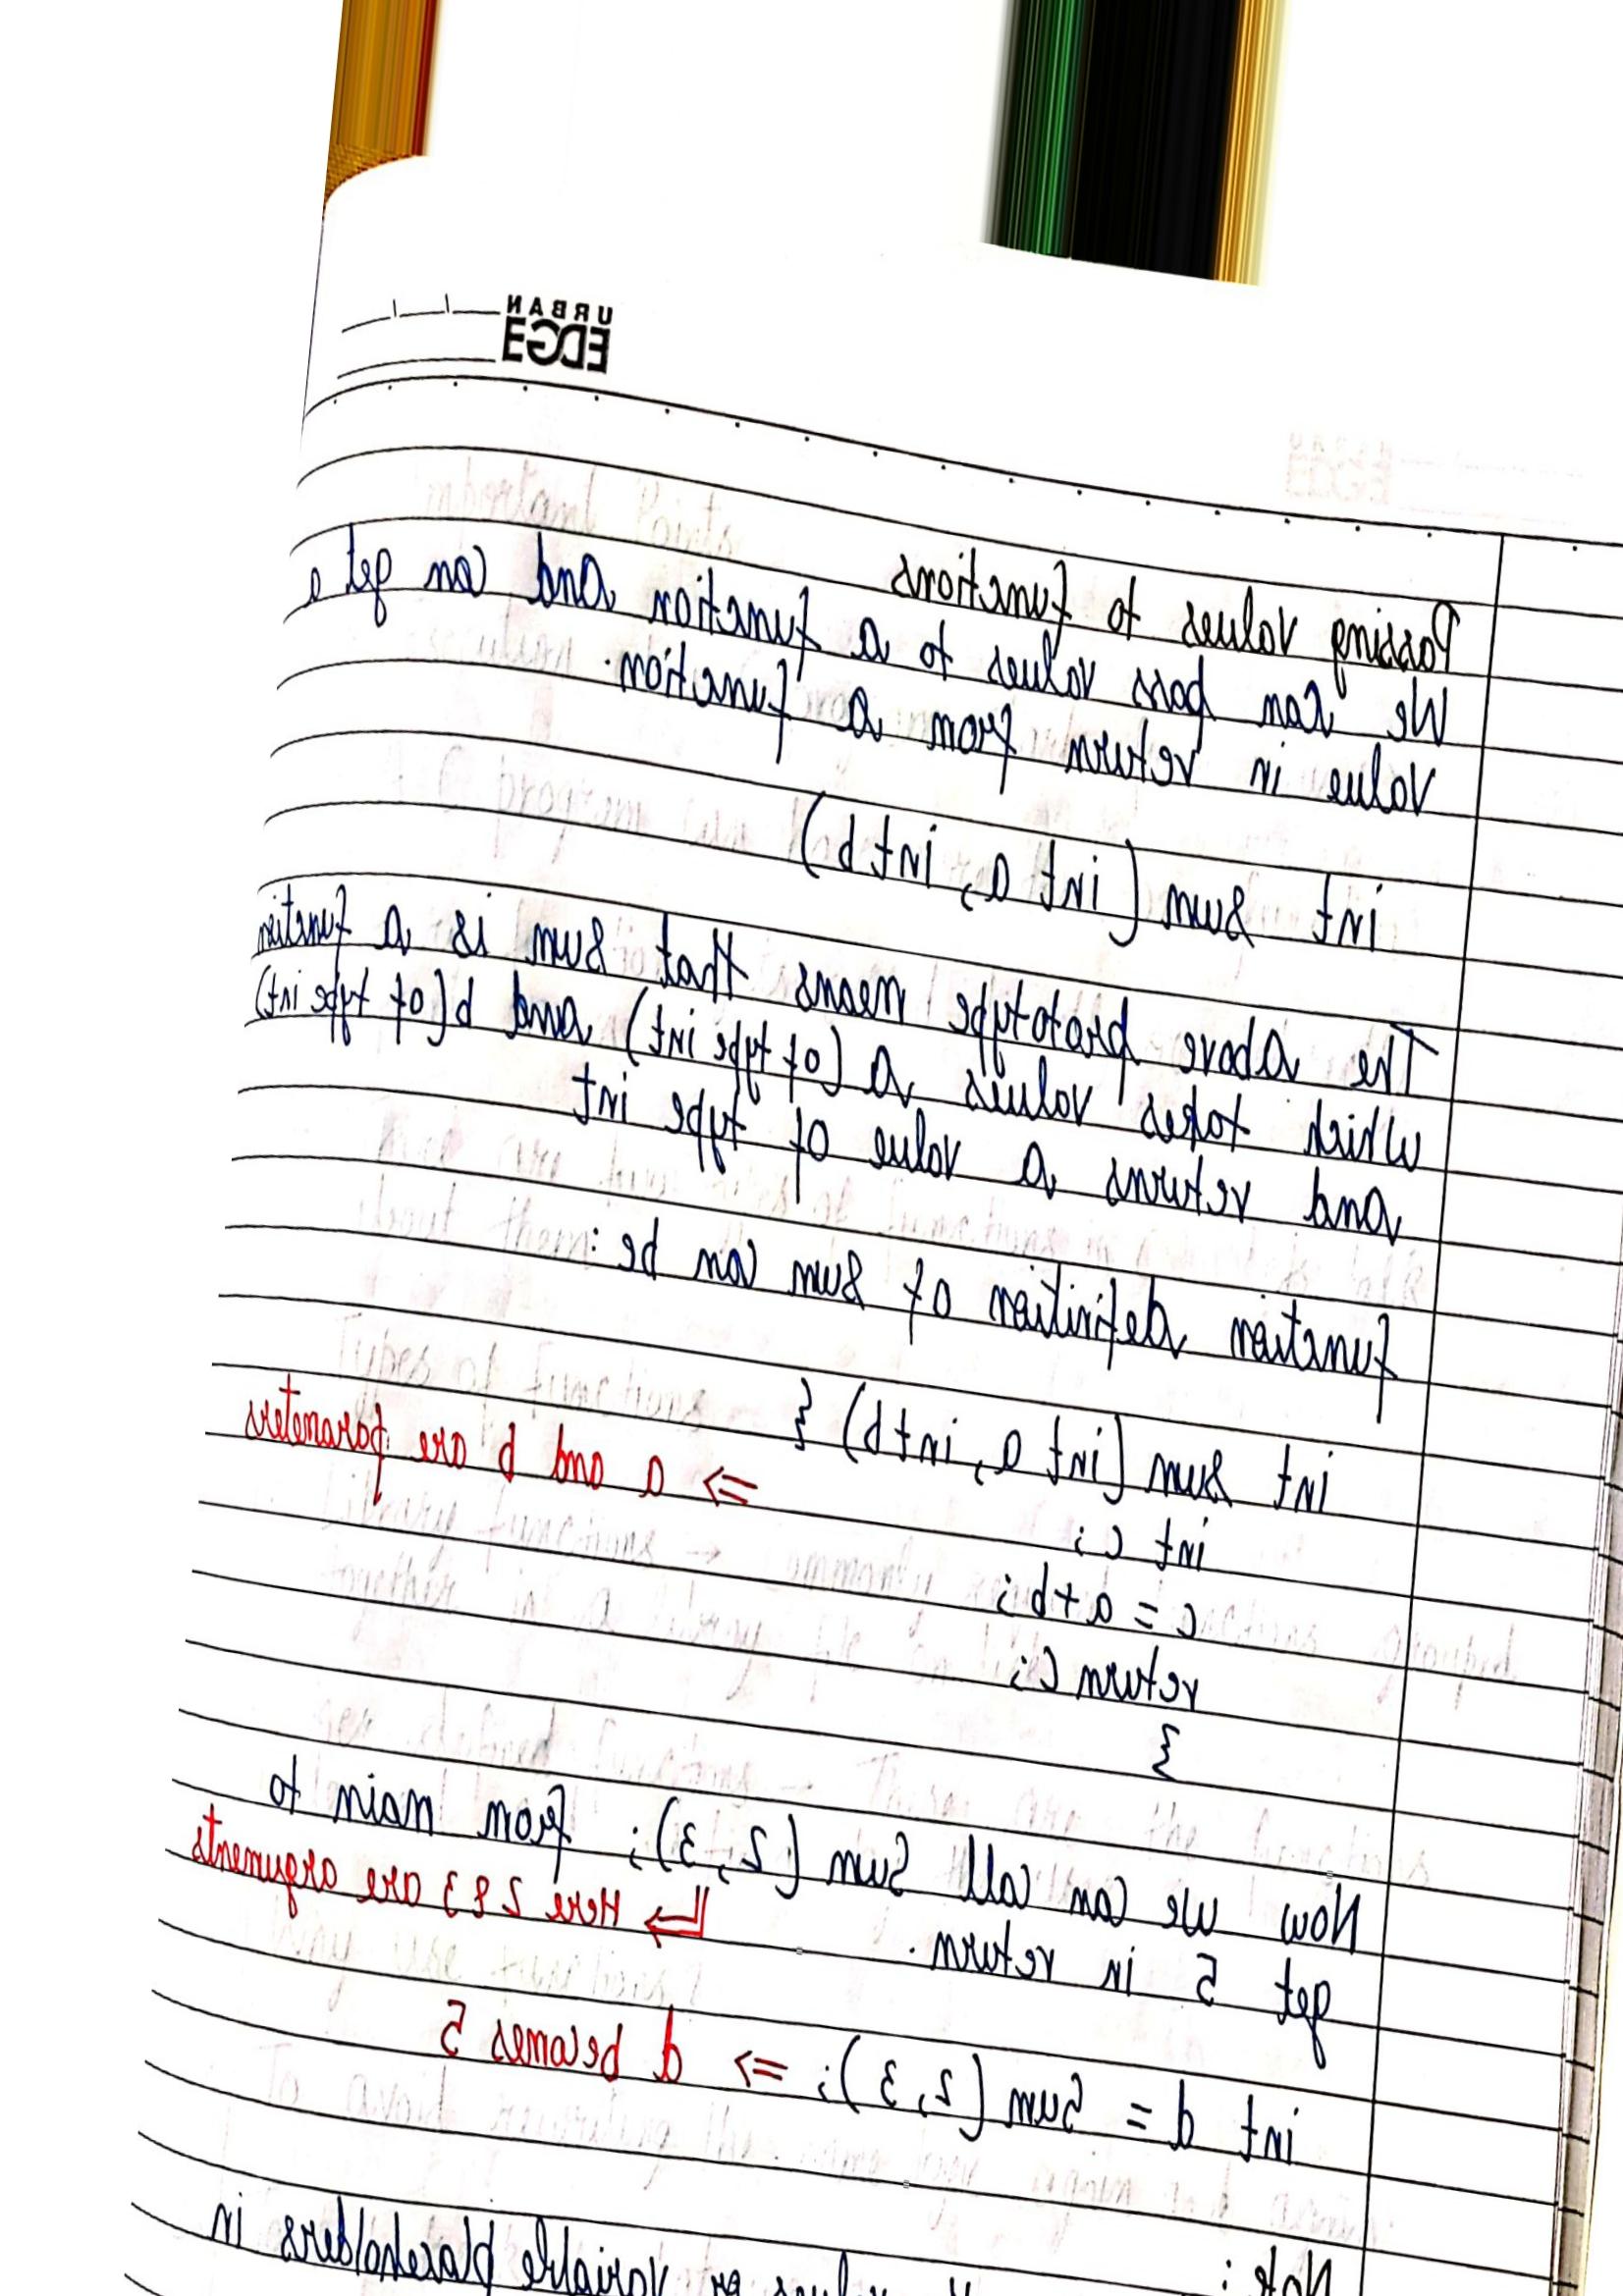 URBAN
EDGE
Passing values to functions
We can pass values to a function and can get a
value in return from a function.
int sum (int a, int b)
The above prototype means that sum is a function
which takes values a (of type int) and b (of type int)
and returns a value of type int
function definition of sum can be:
int sum (int a, int b) {
=> a and b are parameters
int c;
c = a+b;
return c;
}
Now we can call sum (2, 3); from main to
get 5 in return. => Here 2 & 3 are arguments
int d = sum (2, 3); => d becomes 5
Note:
values or variable placeholders in